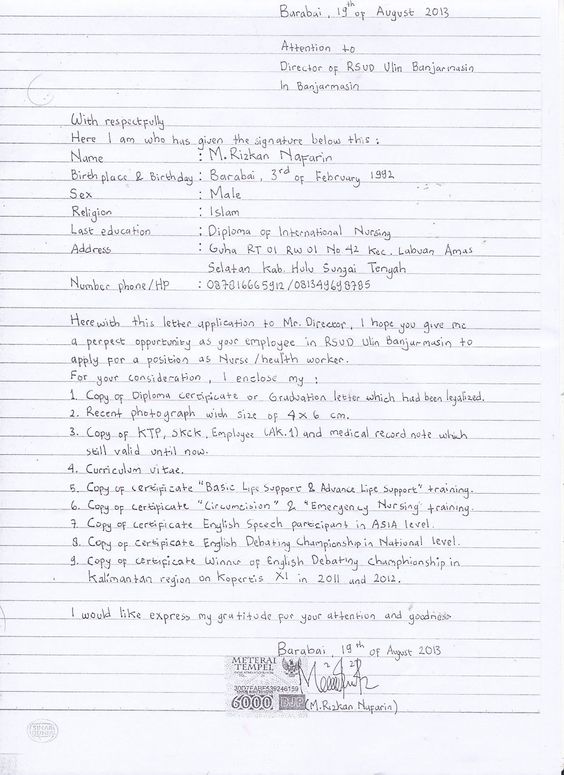 Barabai, 19th of August 2013
Attention to
Director of RSUD Ulin Banjarmasin
In Banjarmasin
With respectfully
Here I am who has given the signature below this :
Name : M. Rizkan Nafarin
Birth place & Birthday : Barabai, 3rd of February 1992
Sex : Male
Religion : Islam
Last education : Diploma of International Nursing
Address : Guha RT 01 RW 01 No 42 Kec. Labuan Amas
Selatan Kab. Hulu Sungai Tengah
Number phone/HP : 087816665912/081349698785
Herewith this letter application to Mr. Director, I hope you give me
a perpect opportunity as your employee in RSUD Ulin Banjarmasin to
apply for a position as Nurse/health worker.
For your consideration, I enclose my :
1. Copy of Diploma certificate or Graduation letter which had been legalized.
2. Recent photograph with size of 4x6 cm.
3. Copy of KTP, SKCK, Employee (AK.1) and medical record note which
still valid until now.
4. Curriculum vitae.
5. Copy of certificate "Basic Life Support & Advance Life Support" training.
6. Copy of certificate "Circumcision" & "Emergency Nursing" training.
7. Copy of certificate English Speech participant in ASIA level.
8. Copy of certificate English Debating Championship in National level.
9. Copy of certificate Winner of English Debating Champhionship in
Kalimantan region on Kopertis XI in 2011 and 2012.
I would like express my gratitude for your attention and goodness
Barabai, 19th of August 2013
METERAI
TEMPEL
6000 DJP
(M.Rizkan Nafarin)
SINAR
DUNIA